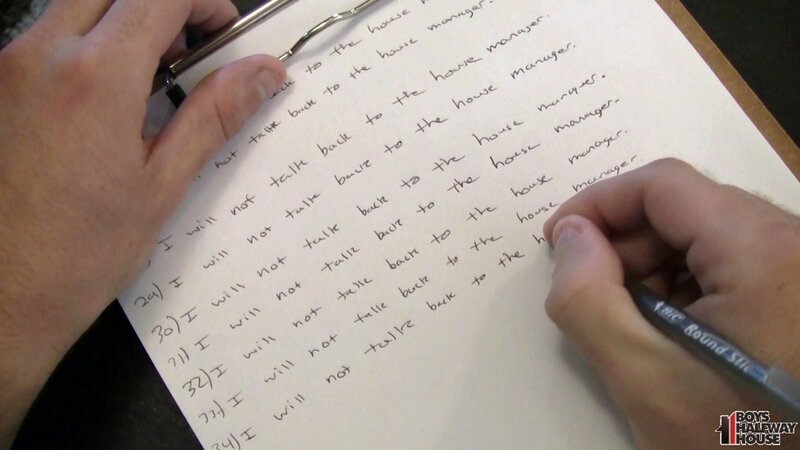 back to the house
not talk back to the house manager.
) I will not talk back to the house manager.
29) I will not talk back to the house manager.
30) I will not talk back to the house manager.
31) I will not talk back to the house manager.
32) I will not talk back to the house manager.
33) I will not talk back to the house manager.
34) I will not talk back to the h
BIC Round Stic
BOYS
HALFWAY
HOUSE